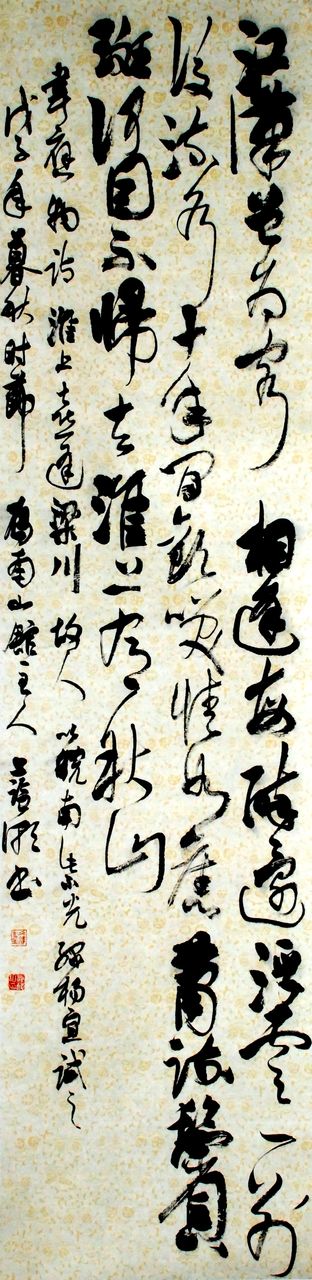 江漢曾为客相逢每醉還浮雲一别
後流水十年间歡笑情如舊蕭疏鬢已
斑何因不歸去淮上有秋山
韋應物詩淮上喜逢梁川故人以皖南光楊宣試之
戊子年暮秋时節南山館主人書